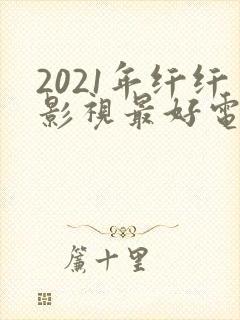 2021年纤纤
影視最好電
簾十里